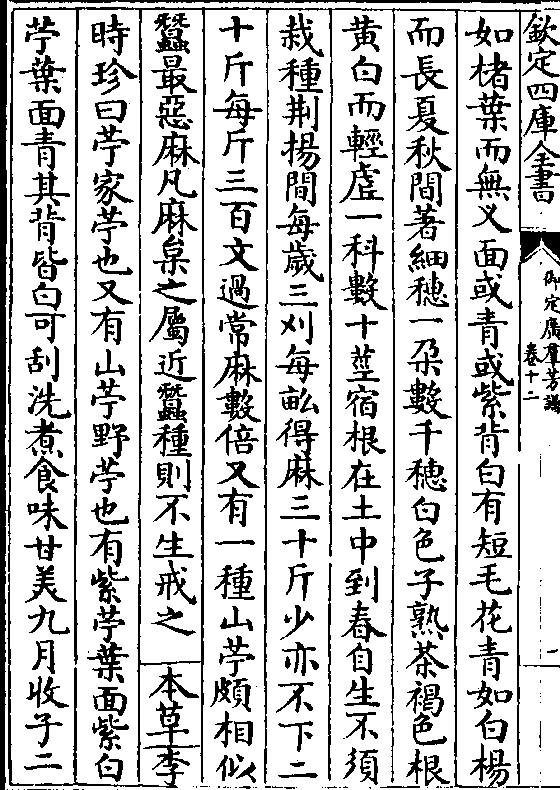 欽定四庫全書
御定廣羣芳譜
卷十二
一
如楮葉而無义面或青或紫背白有短毛花青如白楊
而長夏秋間著細穗一朶數千穗白色子熟茶褐色根
黄白而輕虛一科數十莖宿根在土中到春自生不須
栽種荆揚間每歲三刈每畝得麻三十斤少亦不下二
十斤每斤三百文過常麻數倍又有一種山苧頗相似
蠶最惡麻凡麻枲之屬近蠶種則不生戒之 本草李
時珍曰苧家苧也又有山苧野苧也有紫苧葉面紫白
苧葉面青其背皆白可刮洗煮食味甘美九月收子二